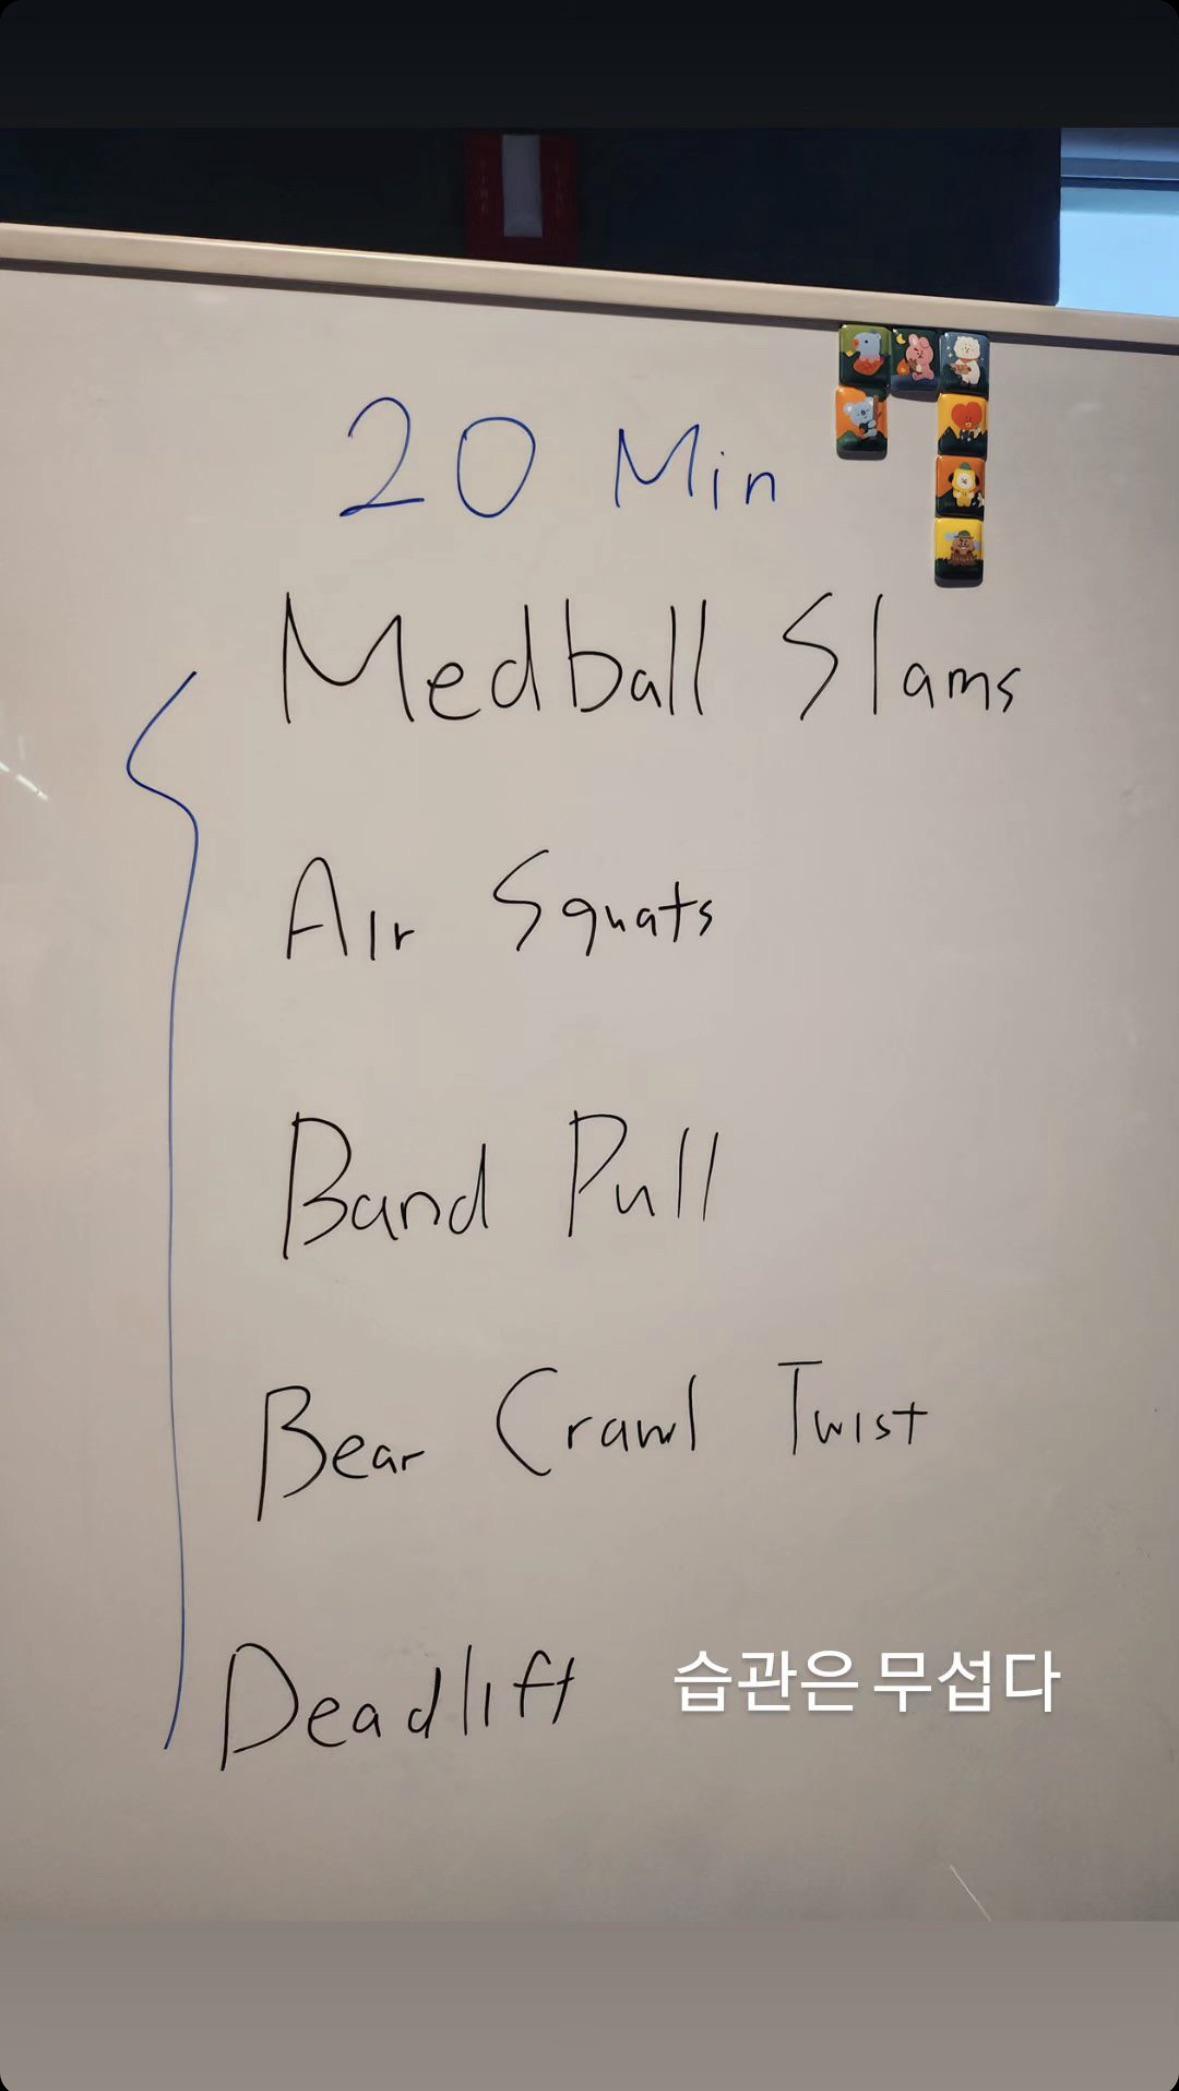 20 Min
Medball Slams
AIr Squats
Band Pull
Bear Crawl Twist
Deadlift
습관은 무섭다